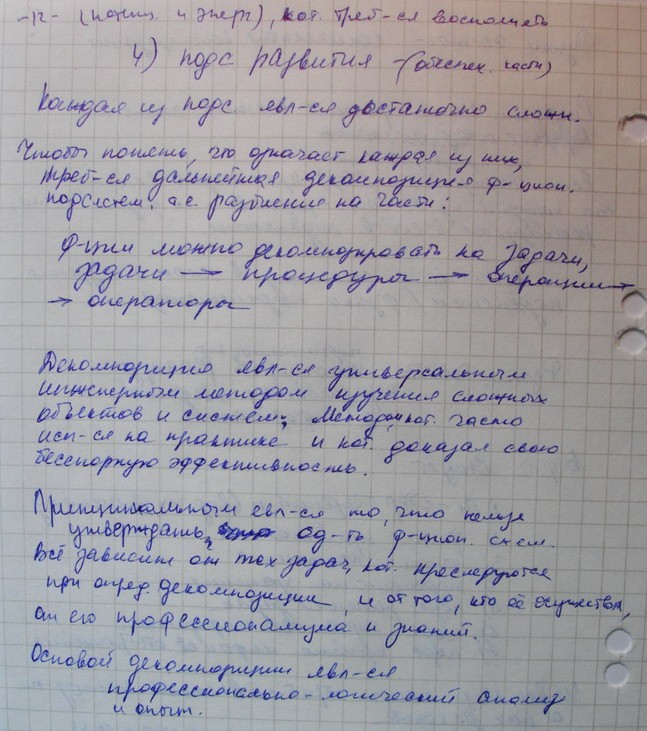 -р- (потенц. и энерг), кот. треб-ся восполнять
4) подс развития - (обеспеч. части)
Каждая из подс. явл-ся достаточно сложн.
Чтобы понять, что означает каждая из них,
треб-ся дальнейшая декомпозиция ф-цион.
подсистем, т.е. разбиение на части:
Ф-ции можно декомпозировать на задачи,
задачи → процедуры → операции →
→ операторы
Декомпозиция явл-ся универсальным
инженерным методом изучения сложных
объектов и систем; Методом, кот. часто
исп-ся на практике и кот. доказал свою
бесспорную эффективность.
Принципиальным явл-ся то, что нельзя
утверждать, од-ть ф-цион. схем.
Всё зависит от тех задач, кот. преследуются
при опред. декомпозиции, и от того, кто её осуществл,
от его профессионализма и знаний.
Основой декомпозиции явл-ся
профессионально-логический анализ
и опыт.